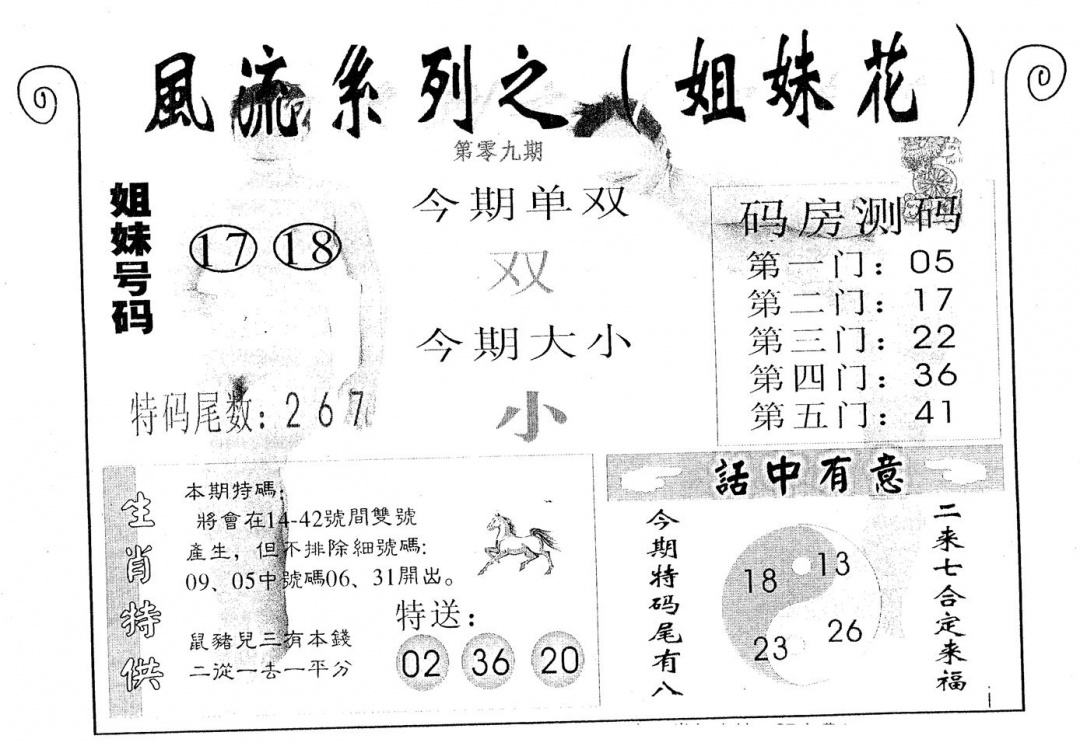 風流系列之（姐妹花）
第零九期
姐妹号码
17 18
特码尾数：267
今期单双
双
今期大小
小
码房测码
第一门：05
第二门：17
第三门：22
第四门：36
第五门：41
生肖特供
本期特碼：
將會在14-42號間雙號
產生，但不排除細號碼：
09、05中號碼06、31開出。
鼠豬兒三有本錢
二從一去一平分
特送：
02 36 20
話中有意
今期特码尾有八
18 13
23 26
二来七合定来福